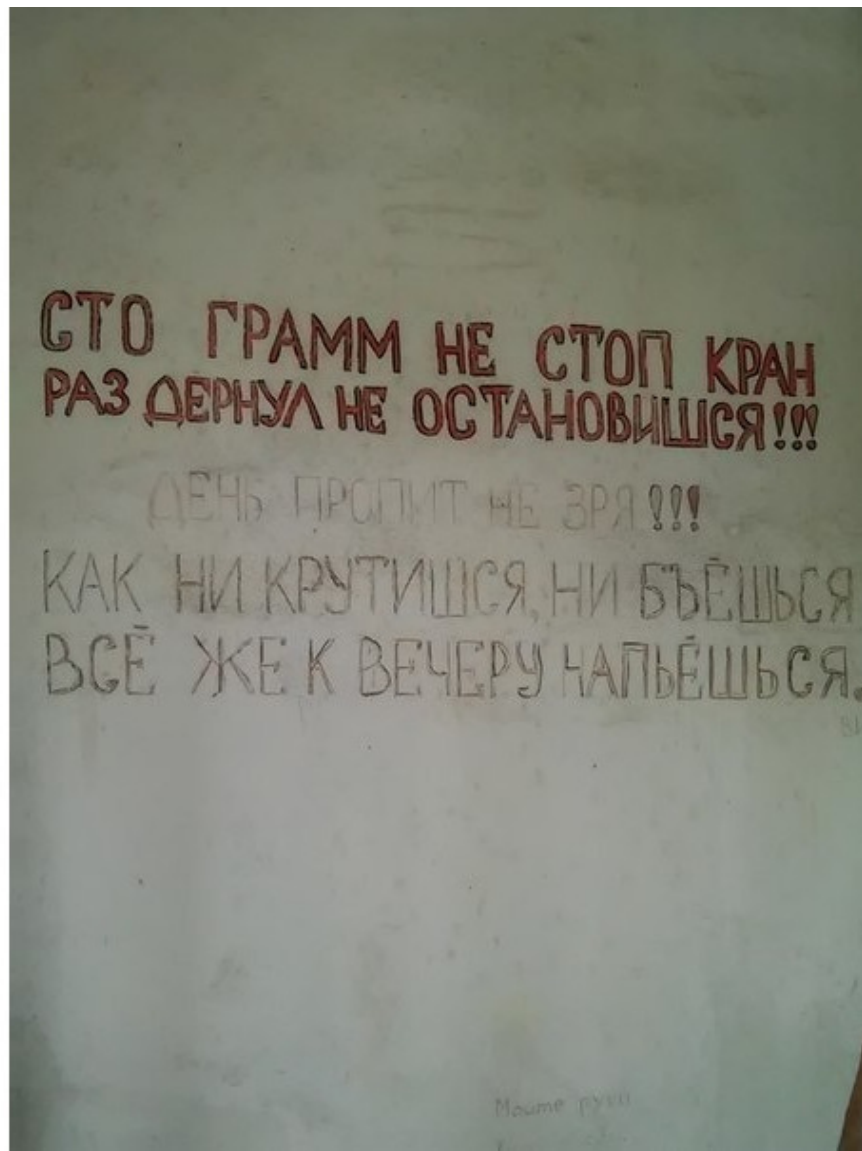 СТО ГРАММ НЕ СТОП КРАН
РАЗ ДЁРНУЛ НЕ ОСТАНОВИШСЯ!!!
ДЕНЬ ПРОПИТ НЕ ЗРЯ!!!
КАК НИ КРУТИШСЯ, НИ БЪЁШЬСЯ
ВСЁ ЖЕ К ВЕЧЕРУ НАПЬЁШЬСЯ.
Мойте руки